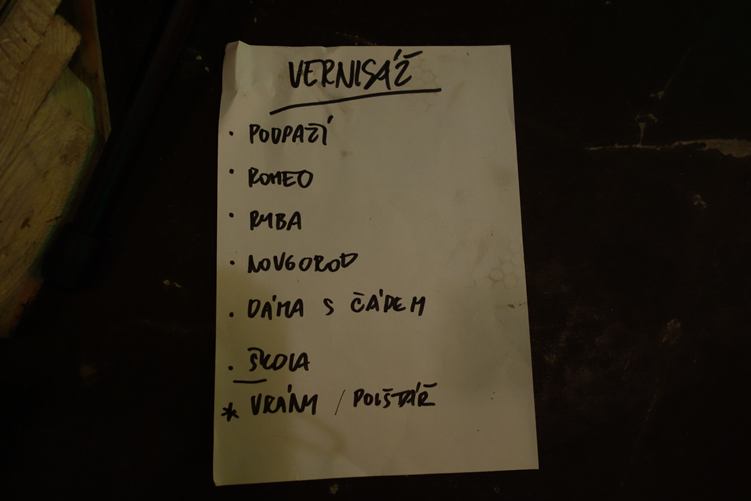 VERNISÁŽ
• PODPAŽÍ
• ROMEO
• RYBA
• NOVGOROD
• DÁMA S ČÁDEM
• ŠKOLA
* VRÁNY / POLŠTÁŘ